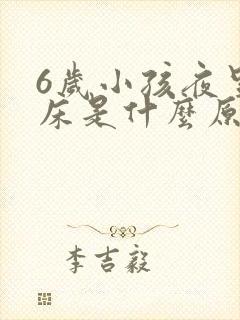 6歲小孩夜
床是什麼原
李吉毅